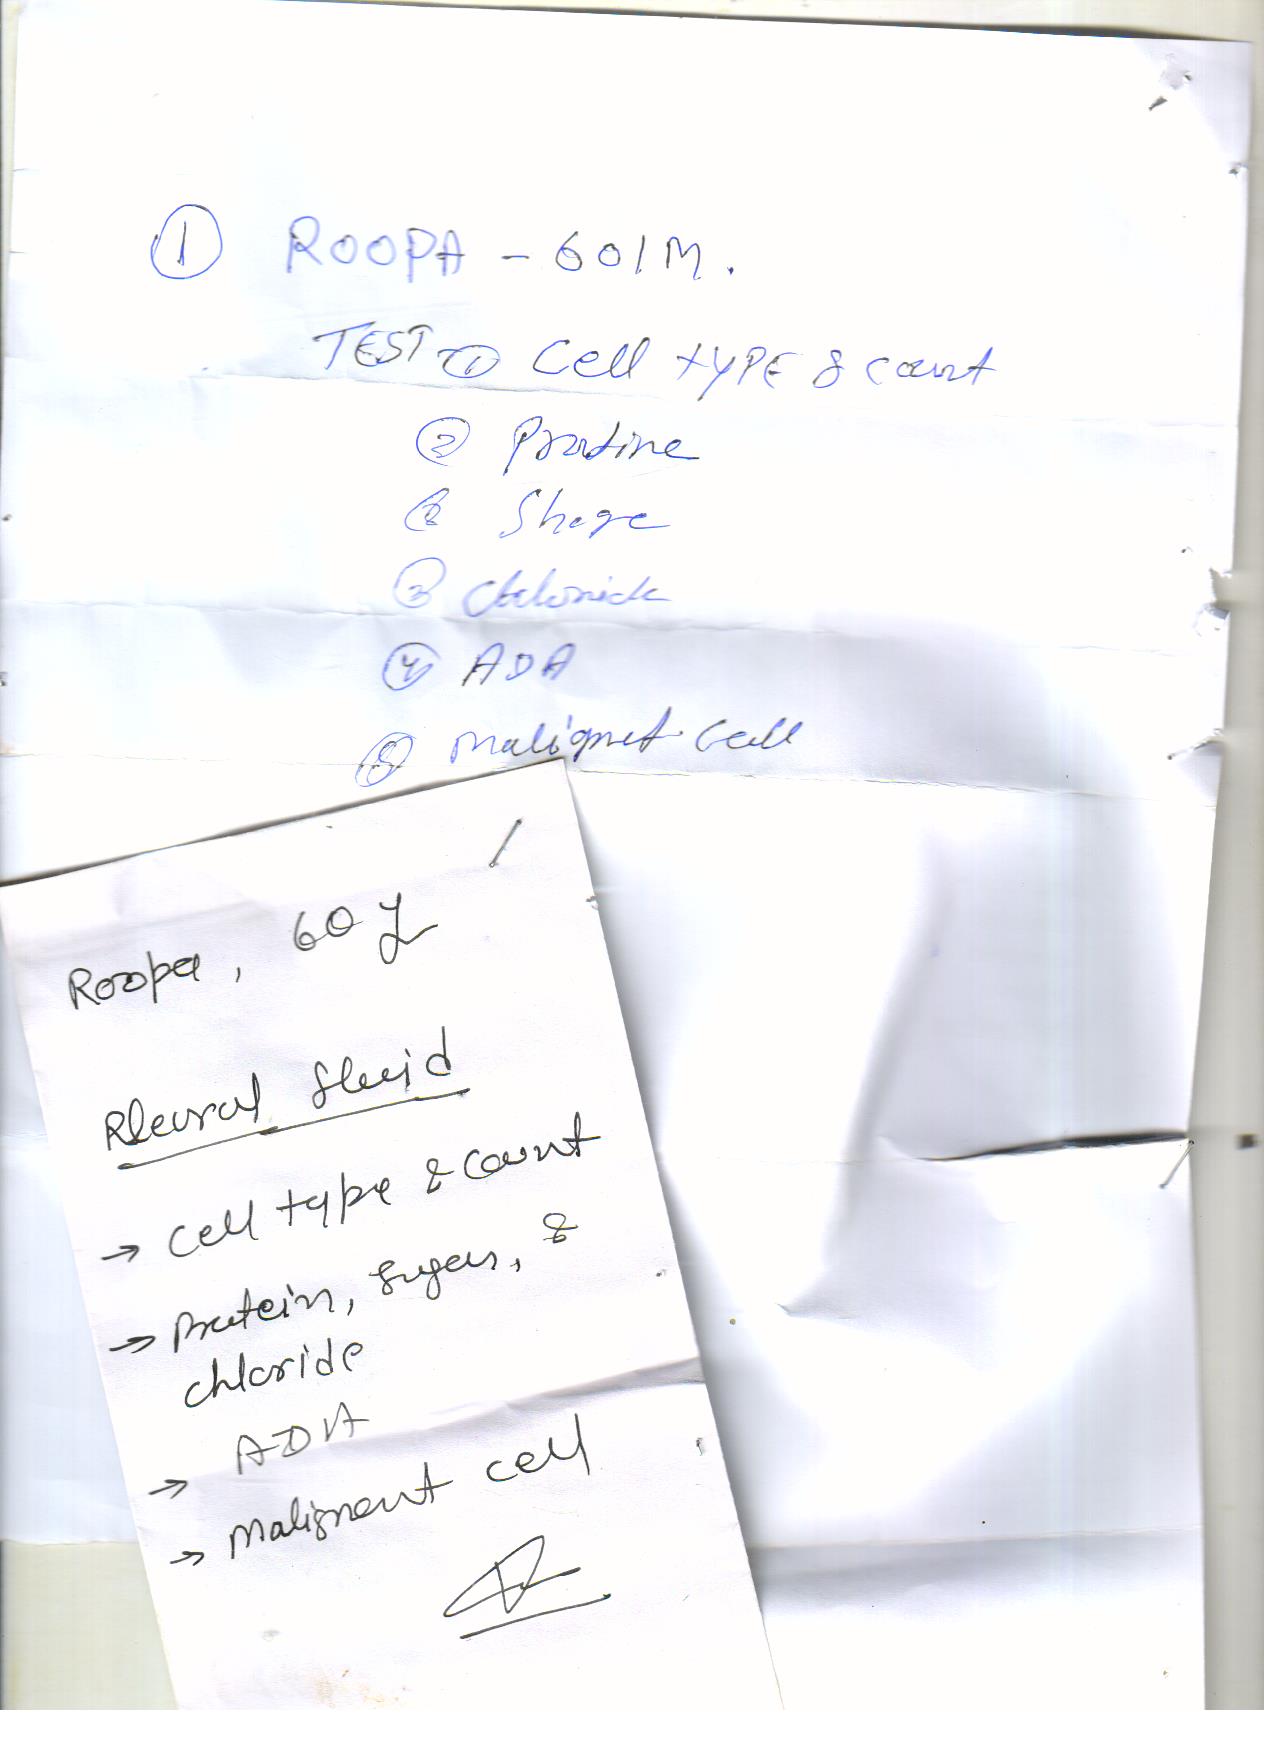 ① ROOPA - 60/M.
TEST ① Cell TYPE & count
② Protine
② Shoge
③ Chloride
④ ADA
⑤ Malignet Cell
Roopa, 60 y
Pleural fluid
→ Cell type & count
→ Protein, Sugar, &
chloride
→ ADA
→ Malignant cell